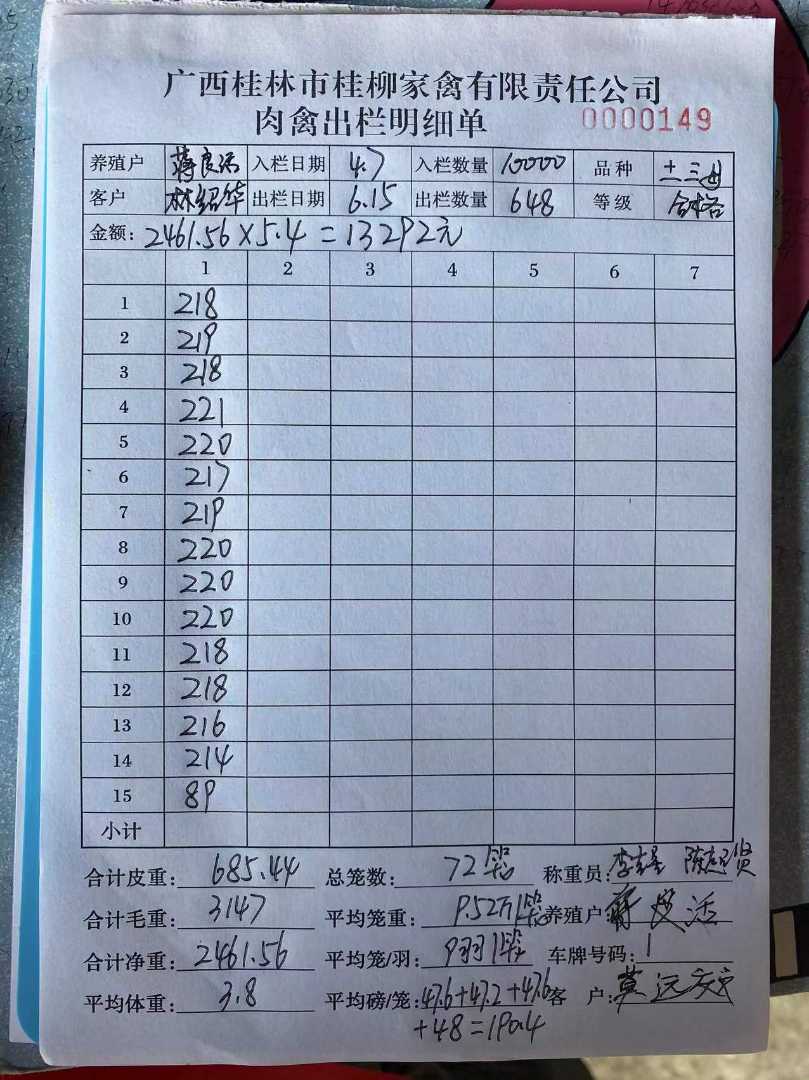 广西桂林市桂柳家禽有限责任公司
肉禽出栏明细单 0000149
养殖户 蒋良活 入栏日期 4.7 入栏数量 10000 品种 土三
客户 林绍华 出栏日期 6.15 出栏数量 648 等级 合格
金额: 2461.56×5.4=13292元
1 2 3 4 5 6 7
1 218
2 219
3 218
4 221
5 220
6 217
7 219
8 220
9 220
10 220
11 218
12 218
13 216
14 214
15 89
小计
合计皮重: 685.44 总笼数: 72笼 称重员: 李
合计毛重: 3147 平均笼重: 9.52斤/笼 养殖户 蒋良活
合计净重: 2461.56 平均笼/羽: 9羽/笼 车牌号码: 1
平均体重: 3.8 平均磅/笼: 47.6+47.2+47.6 客 户: 莫远
+48=190.4